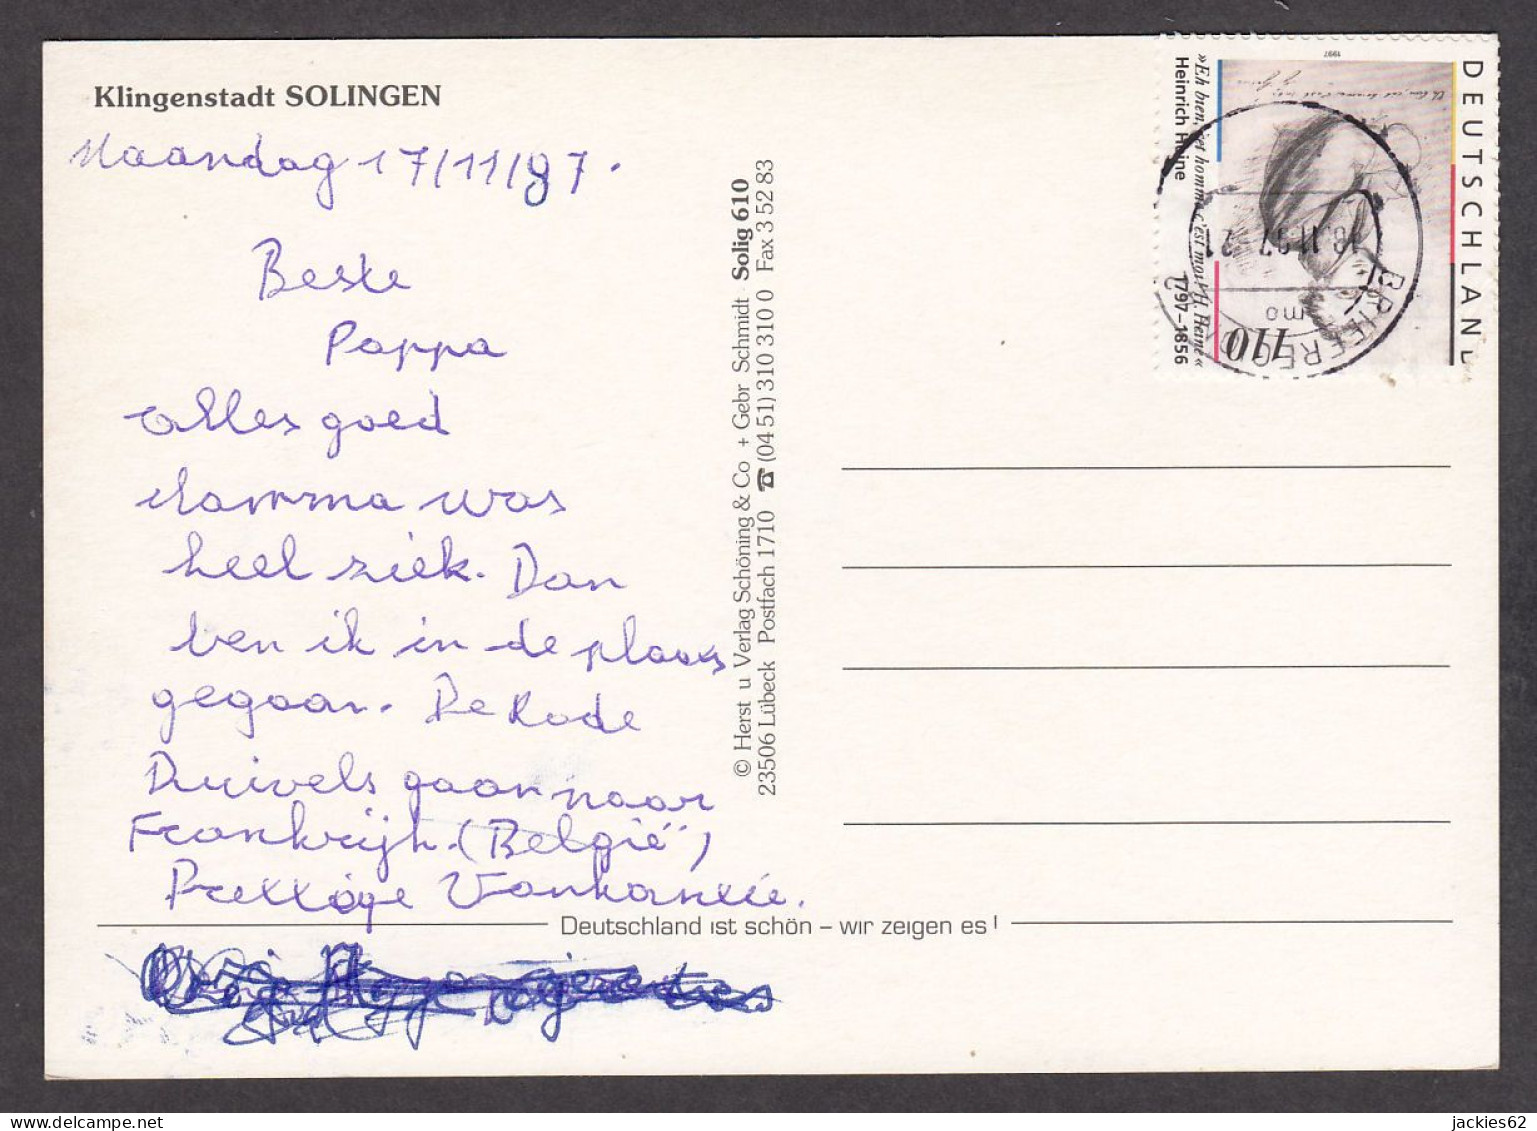 Klingenstadt SOLINGEN
Maandag 17/11/97.
Beste
Pappa
alles goed
Mamma was
heel ziek. Dan
ben ik in de plaats
gegaan. De Rode
Duivels gaan naar
Frankrijk. (België)
Prettige Vankantie.
© Herst u Verlag Schöning & Co + Gebr Schmidt · Solig 610
23506 Lübeck Postfach 1710 ☎ (04 51) 310 310 0 Fax 3 52 83
Deutschland ist schön – wir zeigen es !
DEUTSCHLAND
1997
»Eh bien, cet homme c'est moi« H. Heine«
Heinrich Heine 1797–1856
110
BRIEFREGION
18.11.97 - 21
mo
jackies62